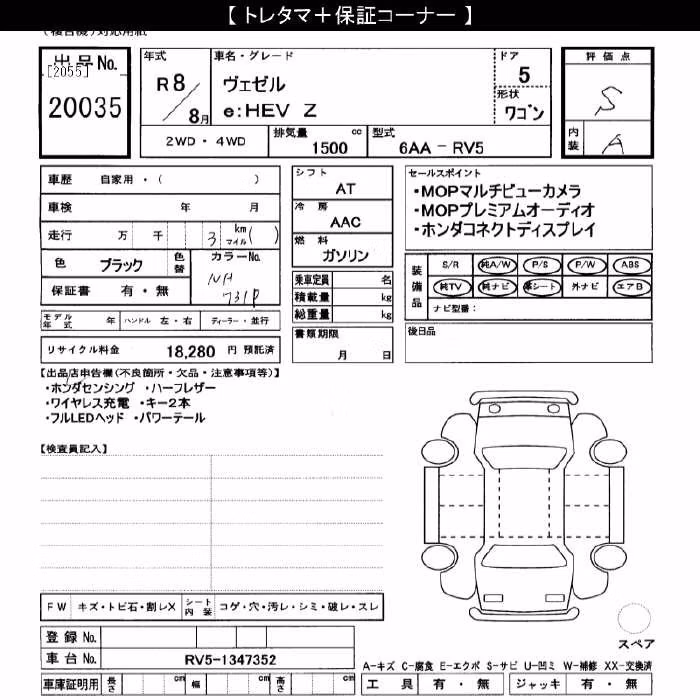 【 トレタマ＋保証コーナー 】
(複合機)対応用紙
出品No.
[2055]
20035
年式
R8/8月
車名・グレード
ヴェゼル
e:HEV Z
ドア
5
形状
ワゴン
評価点
S
内装
A
2WD・4WD
排気量 cc
1500
型式
6AA－RV5
車歴 自家用・( )
車検 年 月
走行 万 千 3 km マイル ( )
色 ブラック 色替
カラーNo.
NH
731P
保証書 有・無
モデル年式 年 ハンドル 左・右 ディーラー・並行
リサイクル料金 18,280 円 預託済
シフト
AT
冷房
AAC
燃料
ガソリン
乗車定員 名
積載量 kg
総重量 kg
書類期限
月 日
セールスポイント
・MOPマルチビューカメラ
・MOPプレミアムオーディオ
・ホンダコネクトディスプレイ
装備品
S/R 純A/W P/S P/W ABS
純TV 純ナビ 革シート 外ナビ エアB
ナビ型番：
後日品
【出品店申告欄(不良箇所・欠品・注意事項等)】
・ホンダセンシング ・ハーフレザー
・ワイヤレス充電 ・キー2本
・フルLEDヘッド ・パワーテール
【検査員記入】
FW キズ・トビ石・割レX シート内装 コゲ・穴・汚レ・シミ・破レ・スレ
登録No.
車台No. RV5-1347352
車庫証明用 長さ cm 幅 cm 高さ cm
スペア
A-キズ C-腐食 E-エクボ S-サビ U-凹ミ W-補修 XX-交換済
工具 有・無 ジャッキ 有・無